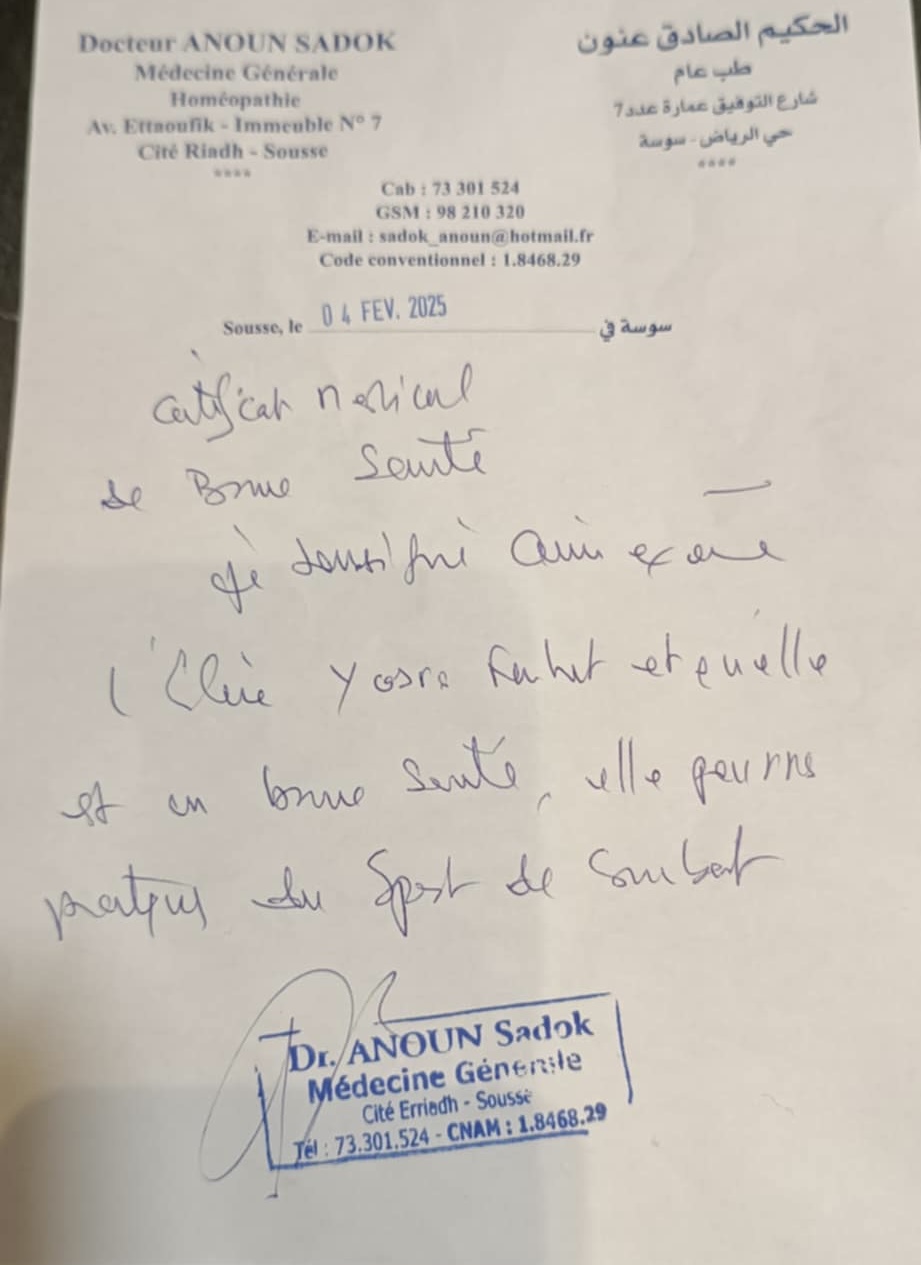 Docteur ANOUN SADOK
Médecine Générale
Homéopathie
Av. Ettaoufik - Immeuble N° 7
Cité Riadh - Sousse
****
الحكيم الصادق عنون
طب عام
شارع التوفيق عمارة عدد 7
حي الرياض - سوسة
****
Cab : 73 301 524
GSM : 98 210 320
E-mail : sadok_anoun@hotmail.fr
Code conventionnel : 1.8468.29
Sousse, le 04 FEV. 2025 سوسة في
Certificat medical
de Bonne Santé
Je soussigné avoir examiné
l'élève Yosra et qu'elle
est en bonne santé, elle pourra
pratiquer du Sport de Combat
Dr. ANOUN Sadok
Médecine Générale
Cité Erriadh - Sousse
Tél : 73.301.524 - CNAM : 1.8468.29